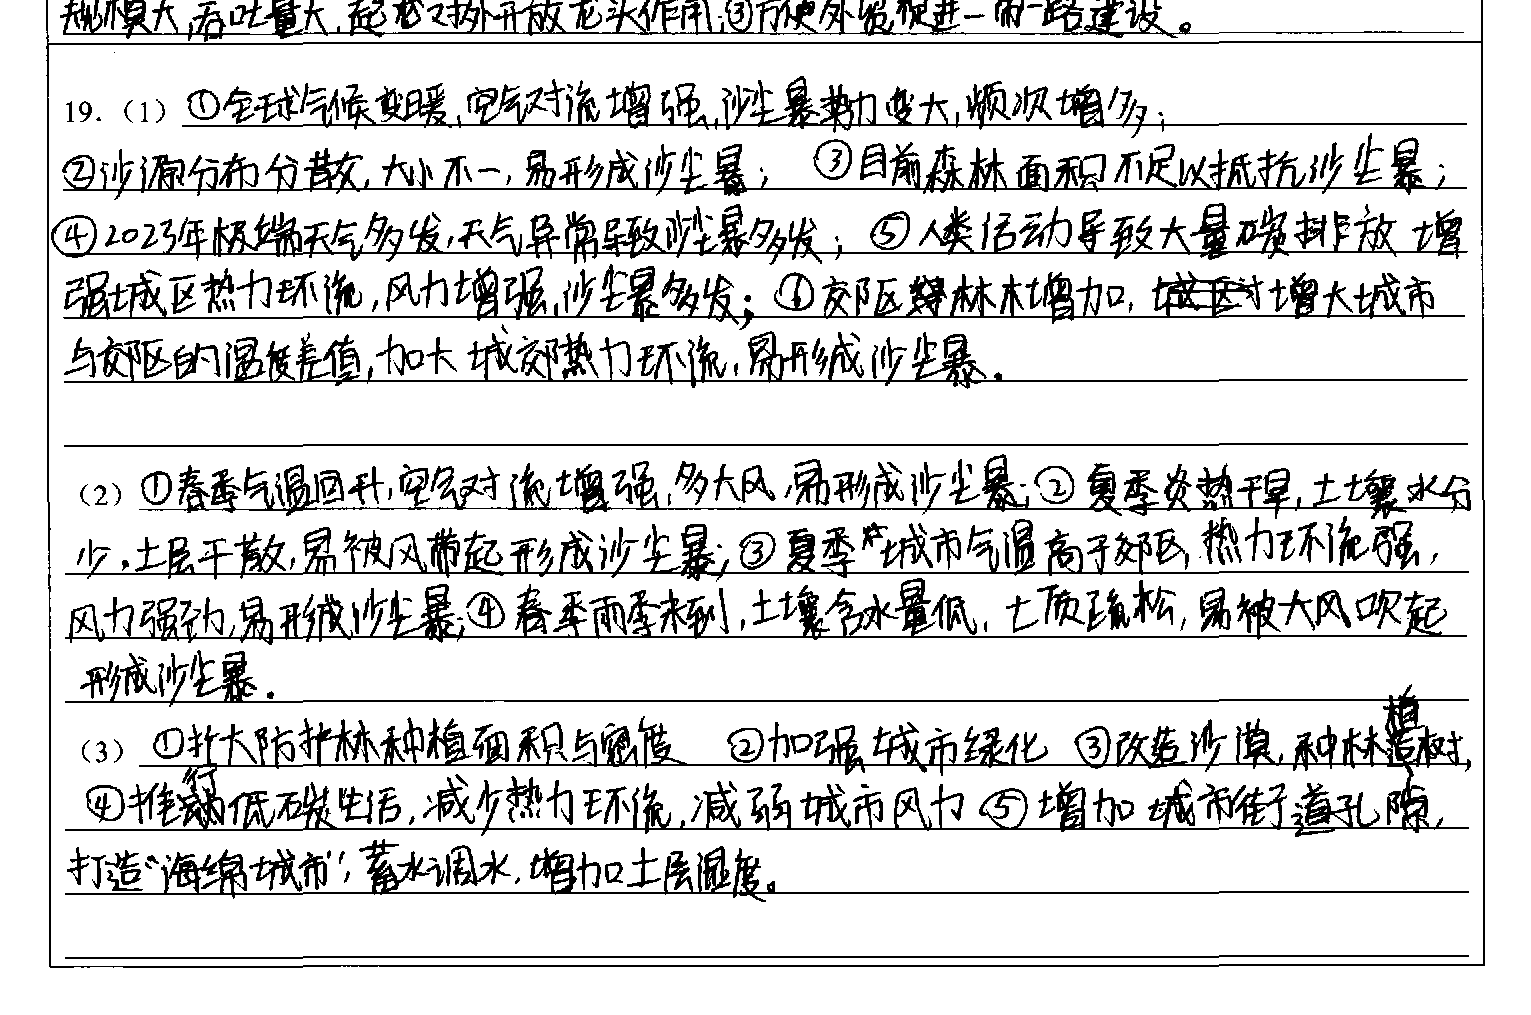 规模大,吞吐量大,起龙对外开放龙头作用;③方便外贸,促进一带一路建设。
19.（1）①全球气候变暖,空气对流增强,沙尘暴势力变大,频次增多;
②沙源分布分散,大小不一,易形成沙尘暴; ③目前森林面积不足以抵抗沙尘暴;
④2023年极端天气多发,天气异常导致沙尘暴多发; ⑤人类活动导致大量碳排放 增
强城区热力环流,风力增强,沙尘暴多发; ⑥郊区林木增加, 增大城市
与郊区的温度差值,加大城郊热力环流,易形成沙尘暴.
（2）①春季气温回升,空气对流增强,多大风,易形成沙尘暴;②夏季炎热干旱,土壤水分
少,土层干散,易被风带起形成沙尘暴;③夏季城市气温高于郊区,热力环流强,
风力强劲,易形成沙尘暴;④春季雨季未到,土壤含水量低,土质疏松,易被大风吹起
形成沙尘暴.
（3）①扩大防护林种植面积与密度 ②加强城市绿化 ③改造沙漠,种林植树,
④推行低碳生活,减少热力环流,减弱城市风力 ⑤增加城市街道孔隙,
打造“海绵城市”,蓄水调水,增加土层湿度。